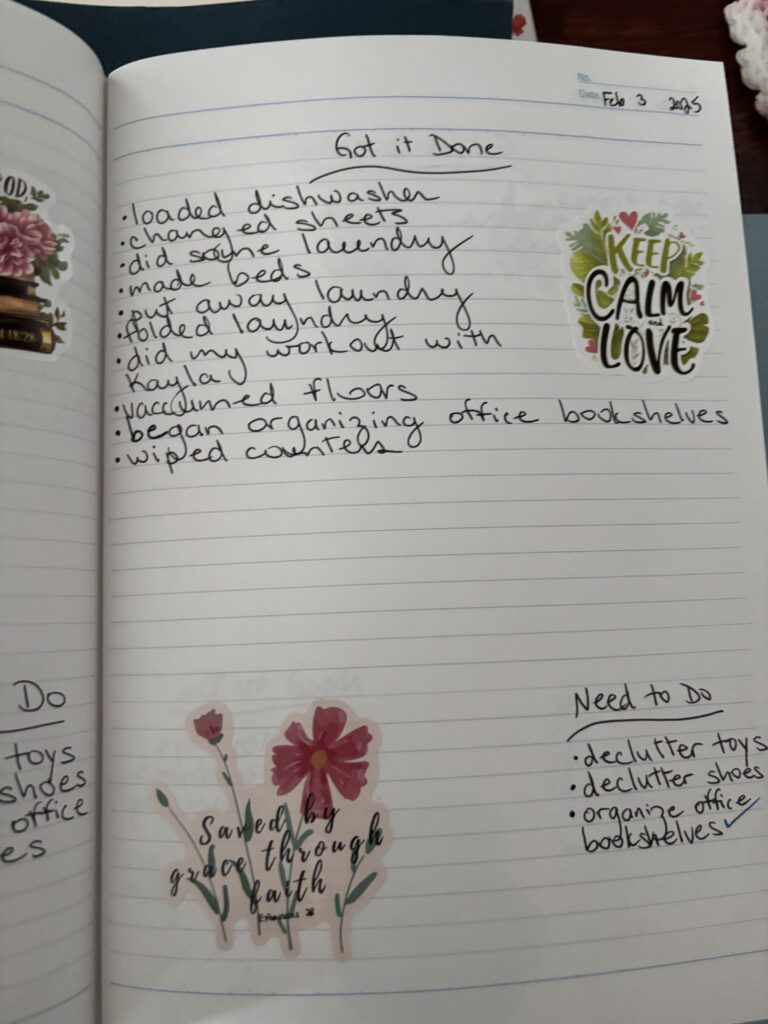 OD,
18:28
Do
toys
shoes
office
es
No.
Date Feb 3 2025
Got it Done
• loaded dishwasher
• changed sheets
• did some laundry
• made beds
• put away laundry
• folded laundry
• did my workout with
Kayla
• vaccumed floors
• began organizing office bookshelves
• wiped counters
KEEP
CALM
and
LOVE
Need to Do
• declutter toys
• declutter shoes
• organize office
bookshelves ✓
Saved by
grace through
faith